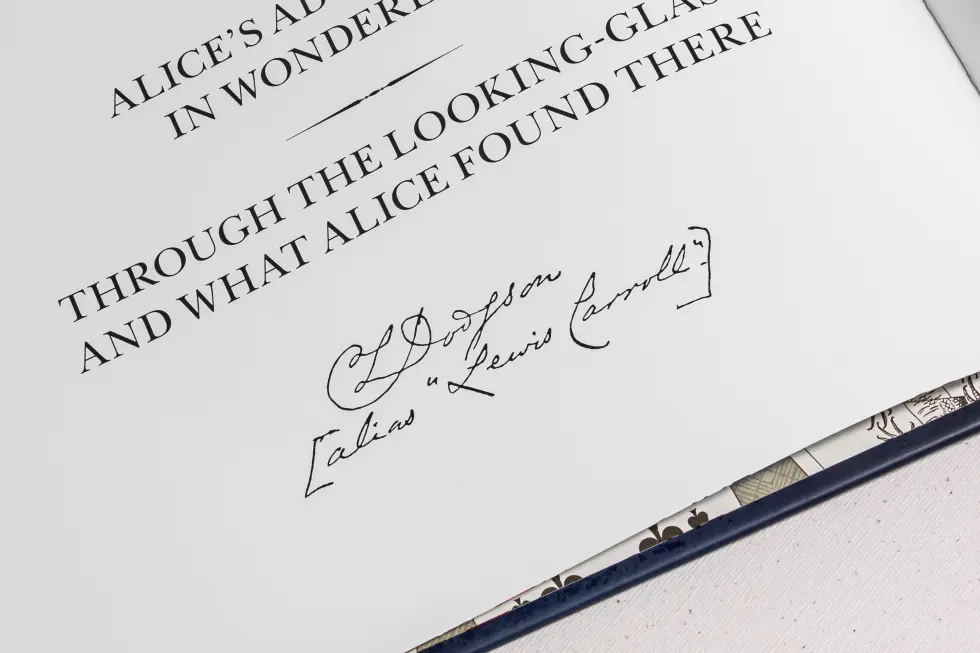 ALICE'S AD
IN WONDERL
THROUGH THE LOOKING-GLAS
AND WHAT ALICE FOUND THERE
CL Dodgson
[alias "Lewis Carroll"]